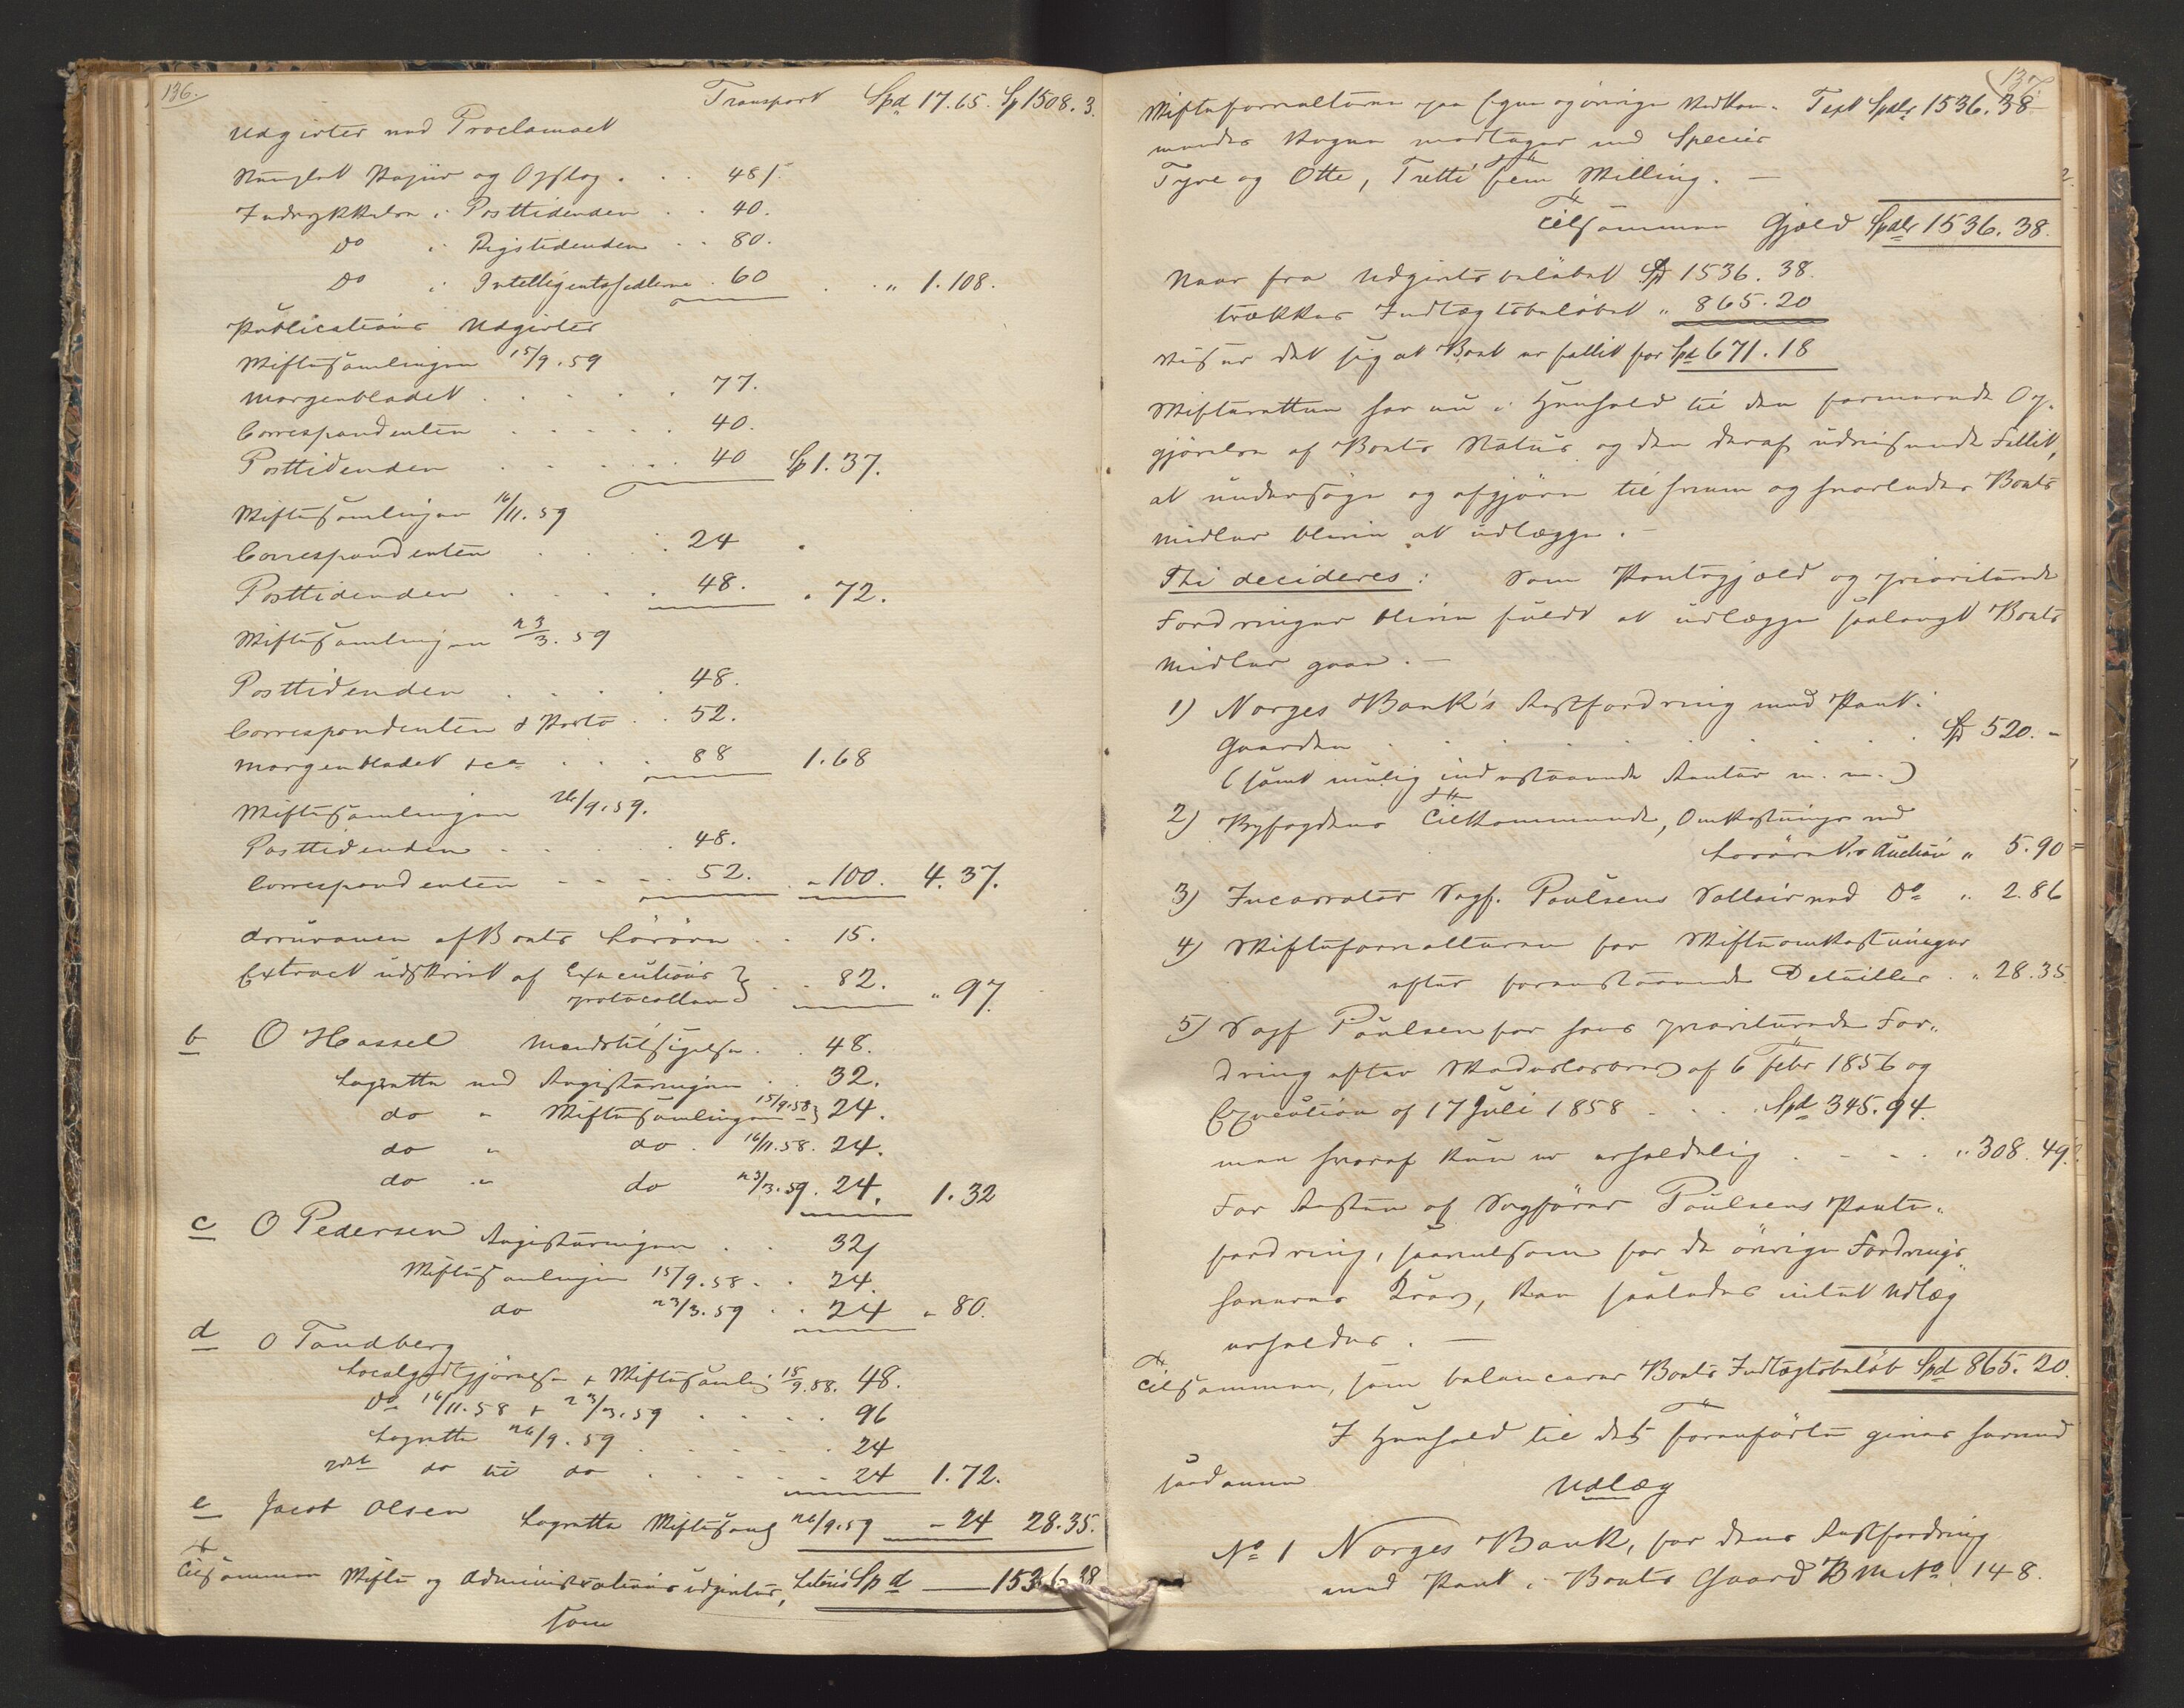 136.
Transport Spd 17.65. Sp 1508.3.
Udgivter ved Proclamaet
Stemplet Papiir og Opslag . . . 48ß
Indrykkelse i Posttidenden . . 40.
Do i Rigstidenden . . 80.
Do i Intelligentssedlerne . 60 . . " 1.108.
Publications Udgivter
Skiftesamlingen 15/9.59
Morgenbladet . . . . . 77.
Correspondenten . . . . . 40.
Posttidenden . . . . . 40 Sp 1.37.
Skiftesamlingen 16/11.59
Correspondenten . . . . 24
Posttidenden . . . . 48. " 72.
Skiftesamlingen 23/3.59
Posttidenden . . . . 48.
Correspondenten & Porto . . 52.
Morgenbladet & ca . . . 88 1.68
Skiftesamlingen 26/9.59.
Posttidenden . . . . 48.
Correspondenten . . . . 52. . " 100. 4.37.
af Boets Løsøre . . 15.
Extract udskrivt af Executions
protocollen . . 82. " 97.
b O Hassel Mandstilsigelse . . 48.
Lagrette ved Registeringen . . 32.
do " Skiftesamlingen 15/9.58 24.
do " do . 16/11.58. 24.
do " do 23/3.59. 24. 1.32
c O Pedersen Registeringen . . 32ß
Skiftesamlingen 15/9.58 . . 24.
do 23/3.59 . . 24 " 80.
d O Tandberg
Localgodtgjørelse & Skiftesamlg 15/9.58. 48.
Do 16/11.58 & 23/3.59 . . . . 96
Lagrette 26/9.59 . . . . . 24
do til do . . . . . 24 1.72.
e Jacob Olsen Lagrette Skiftesamlg 26/9.59 - 24 28.35.
Tilsammen Skifte og Administrationsudgivter, Lateris Spd — 1536.38
som
137.
Skifteforvalteren paa egne og øvrige Vedkom- Tapt Spdlr 1536.38
mendes Vegne modtager med Species
Tyve og Otte, Tretti fem Skilling. —
Tilsammen Gjæld Spdlr 1536.38.
Naar fra Udgivtsbeløbet Spd 1536.38.
trækkes Indtægtsbeløbet " 865.20
viser det sig at Boet er fallit for Spd 671.18
Skifteretten har nu i Henhold til den formerende Op-
gjørelse af Boets Status og den deraf udvisende Fallit,
at undersøge og afgjøre til hvem og hvorledes Boets
Midler blive at udlægge. —
Thi decideres: Som Pantegjæld og prioriterede
Fordringer blive fuldt at udlægge saalangt Boets
Midler gaae. —
1) Norges Bank's Restfordring med Pant i
Gaarden . . . . . . . . . Spd 520. -
(samt mulig indestaaende Renter m. m.)
2) Byfogdens Tilkommende, Omkastninger ved
Løsøre V. Auction " 5.90
3) Incassator Sagf. Paulsens Sallair ved Do " 2.86
4) Skifteforvalteren for Skifteomkostninger
efter foranstaaende Detailler . " 28.35
5) Sagf Paulsen for hans prioriterede For-
dring efter Skadesløsbrev af 6 Febr 1856 og
Execution af 17 Juli 1858 . . . . Spd 345.94.
men hvoraf kun er erholdelig . . . . " 308.49.
For Resten af Sagfører Paulsens Pante-
fordring, saavelsom for de øvrige Fordrings-
haveres Krav, kan saaledes intet Udlæg
erholdes. —
Tilsammen, som balancerer Boets Indtægtsbeløb Spd 865.20.
I Henhold til det foranførte gives herved
saadanne
Udlæg
No 1 Norges Bank, for dens Restfordring
med Pant i Boets Gaard B M No 148.